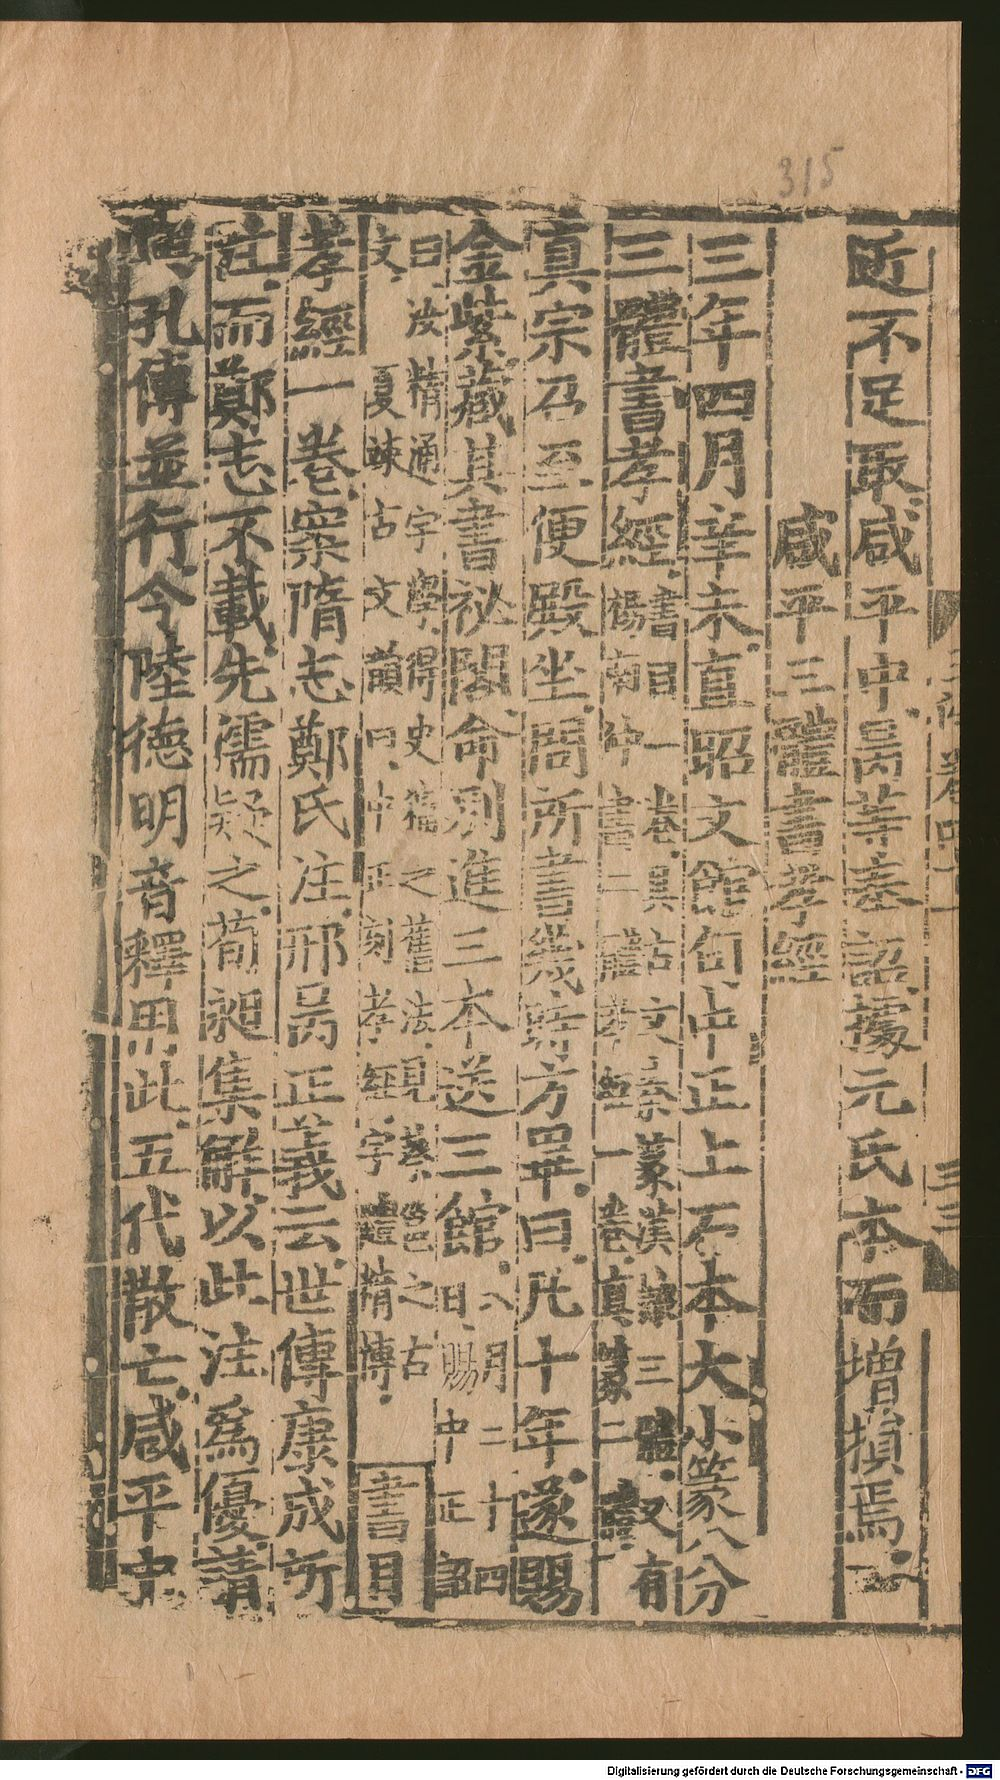 315
近不足取咸平中昺等奉詔據元氏本而增損焉
咸平三體書孝經
三年四月辛未直昭文館句中正上石本大小篆八分
三體書孝經書目一卷具古文大篆漢隸三體又有
楊南仲書二體孝經一卷真篆二體
真宗召至便殿坐問所書幾時方畢曰凡十年遂賜
金紫藏其書祕閣命別進三本送三館八月二十四
日賜中正詔
曰汝精通字學得史籀之舊法見蔡邕之古
文 夏竦古文韻曰中正刻孝經字體精博 書目
孝經一卷案隋志鄭氏注邢昺正義云世傳康成所
註而鄭志不載先儒疑之荀昶集解以此注爲優請
與孔傳並行今陸德明音釋用此五代散亡咸平中
Digitalisierung gefördert durch die Deutsche Forschungsgemeinschaft - DFG